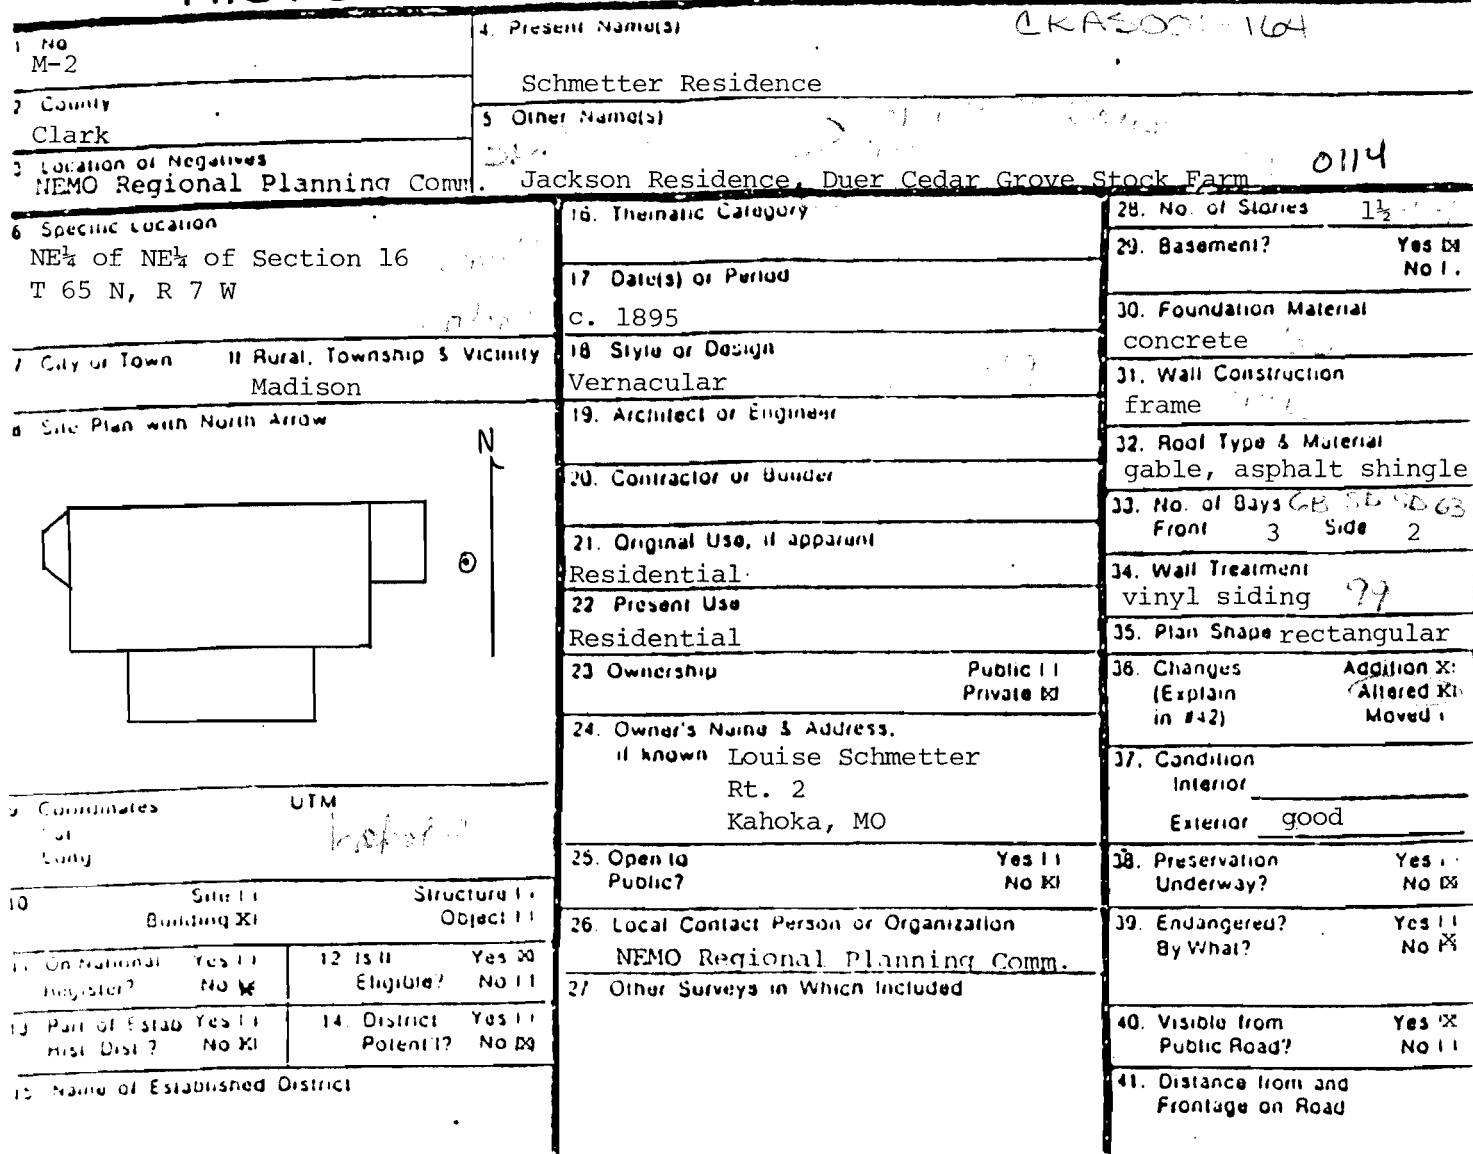 1 No
M-2
2 County
Clark
3 Location of Negatives
NEMO Regional Planning Comm.
4. Present Name(s)
Schmetter Residence
164
5 Other Name(s)
Jackson Residence, Duer Cedar Grove Stock Farm
0114
6 Specific Location
NE¼ of NE¼ of Section 16
T 65 N, R 7 W
7 City or Town If Rural, Township & Vicinity
Madison
8 Site Plan with North Arrow
N
9 Coordinates UTM
Lat
Long
10 Site Structure
Building X Object
11 On National Register? Yes No X
12 Is It Eligible? Yes X No
13 Part of Estab Hist. Dist.? Yes No X
14. District Potent'l? Yes No X
15 Name of Established District
16. Thematic Category
17 Date(s) or Period
c. 1895
18 Style or Design
Vernacular
19. Architect or Engineer
20. Contractor or Builder
21. Original Use, if apparent
Residential
22 Present Use
Residential
23 Ownership Public
Private X
24. Owner's Name & Address,
if known Louise Schmetter
Rt. 2
Kahoka, MO
25. Open to Yes
Public? No X
26. Local Contact Person or Organization
NEMO Regional Planning Comm.
27 Other Surveys in Which Included
28. No. of Stories 1½
29. Basement? Yes X
No
30. Foundation Material
concrete
31. Wall Construction
frame
32. Roof Type & Material
gable, asphalt shingle
33. No. of Bays
Front 3 Side 2
34. Wall Treatment
vinyl siding 99
35. Plan Shape rectangular
36. Changes Addition X
(Explain Altered X
in #42) Moved
37. Condition
Interior
Exterior good
38. Preservation Yes
Underway? No X
39. Endangered? Yes
By What? No X
40. Visible from Yes X
Public Road? No
41. Distance from and
Frontage on Road